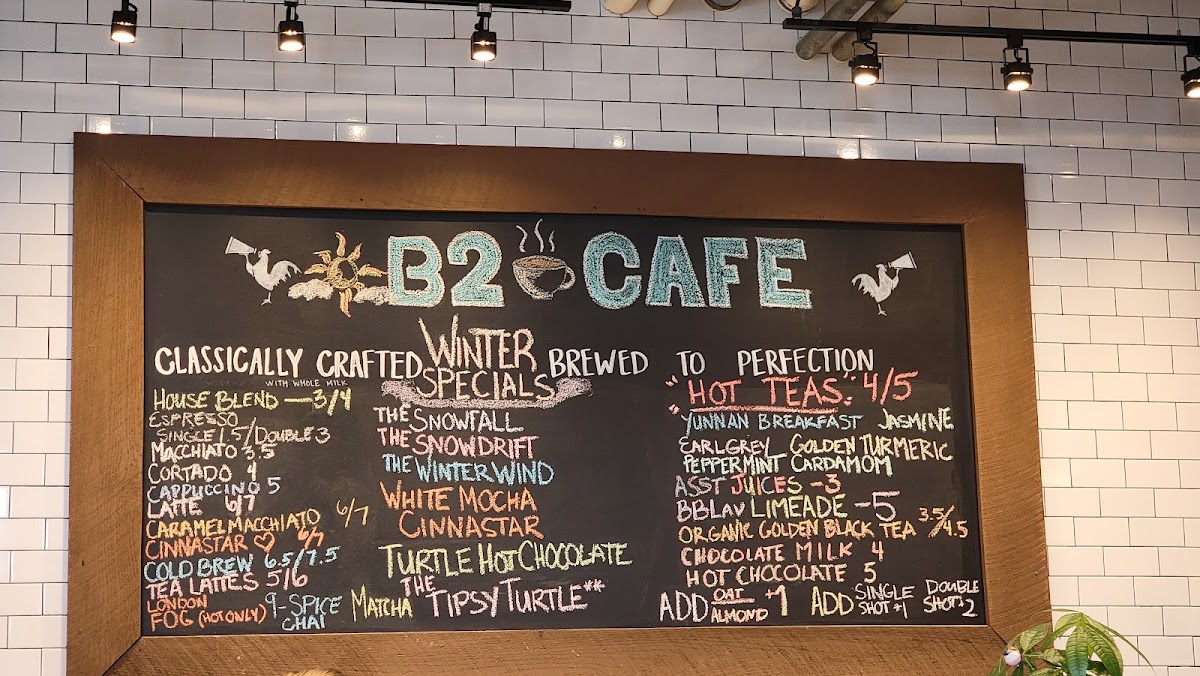 B2 CAFE
CLASSICALLY CRAFTED
WITH WHOLE MILK
HOUSE BLEND — 3/4
ESPRESSO
SINGLE 1.5/DOUBLE 3
MACCHIATO 3.5
CORTADO 4
CAPPUCCINO 5
LATTE 6/7
CARAMEL MACCHIATO 6/7
CINNASTAR ♡ 6/7
COLD BREW 6.5/7.5
TEA LATTES 5/6
LONDON
FOG (HOT ONLY) 9-SPICE
CHAI
MATCHA
WINTER
SPECIALS
THE SNOWFALL
THE SNOWDRIFT
THE WINTER WIND
WHITE MOCHA
CINNASTAR
TURTLE HOT CHOCOLATE
THE TIPSY TURTLE**
BREWED TO PERFECTION
"HOT TEAS:" 4/5
"YUNNAN BREAKFAST JASMINE
EARL GREY GOLDEN TURMERIC
PEPPERMINT CARDAMOM
ASST JUICES -3
BBLAV LIMEADE -5
ORGANIC GOLDEN BLACK TEA 3.5/4.5
CHOCOLATE MILK 4
HOT CHOCOLATE 5
ADD OAT +1
ALMOND
ADD SINGLE SHOT +1
DOUBLE SHOT 2